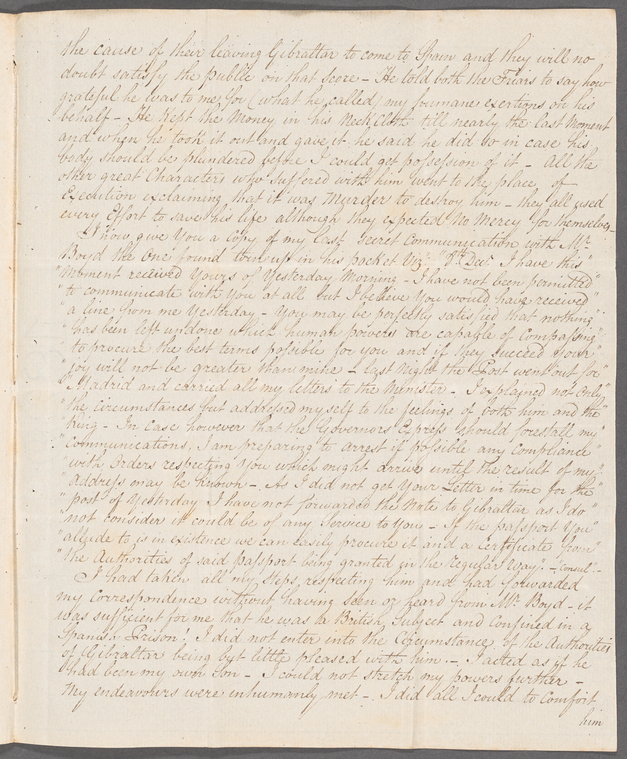 the cause of their leaving Gibraltar to come to Spain and they will no
doubt satisfy the public on that score - He told both the Friars to say how
grateful he was to me for (what he called) my humane exertions on his
behalf - He kept the Money in his Neck Cloth till nearly the last Moment
and when he took it out and gave it he said he did so in case his
body should be plundered before I could get possession of it - All the
other great Characters who suffered with him went to the place of
Execution exclaiming that it was Murder to destroy him - they all used
every Effort to save his life although they expected No Mercy for themselves
I now give You a Copy of my last secret Communication with Mr.
Boyd the One found torn up in his pocket Viz: "9th Decr. I have this"
"Moment received Yours of Yesterday Morning - I have not been permitted"
"to communicate with You at all but I believe You would have received"
"a line from me Yesterday - You may be perfectly satisfied that nothing"
"has been left undone which human powers are capable of Compassing"
"to procure the best terms possible for you and if they succeed Your"
"joy will not be greater than mine - last Night the Post went out for"
"Madrid and carried all my letters to the Minister - I explained not only"
"the circumstances but addressed myself to the feelings of both him and the"
"King - In case however that the Governors Express should forestall my"
"Communications, I am preparing to arrest if possible any Compliance"
"with Orders respecting You which might arrive until the result of my"
"Address may be known - As I did not get Your Letter in time for the"
"post of Yesterday I have not forwarded the Note to Gibraltar as I do"
"not consider it could be of any Service to You - If the passport You"
"allude to is in existence we can easily procure it and a certificate from"
"the Authorities of said Passport being granted in the regular Way". - Consul -
I had taken all my steps respecting him and had forwarded
my Correspondence without having seen or heard from Mr. Boyd - it
was sufficient for me that he was a British Subject and confined in a
Spanish Prison! I did not enter into the Circumstance of the Authorities
of Gibraltar being but little pleased with him. - I acted as if he
had been my own Son - I could not stretch my powers further -
My endeavours were inhumanly met - I did all I could to Comfort
him